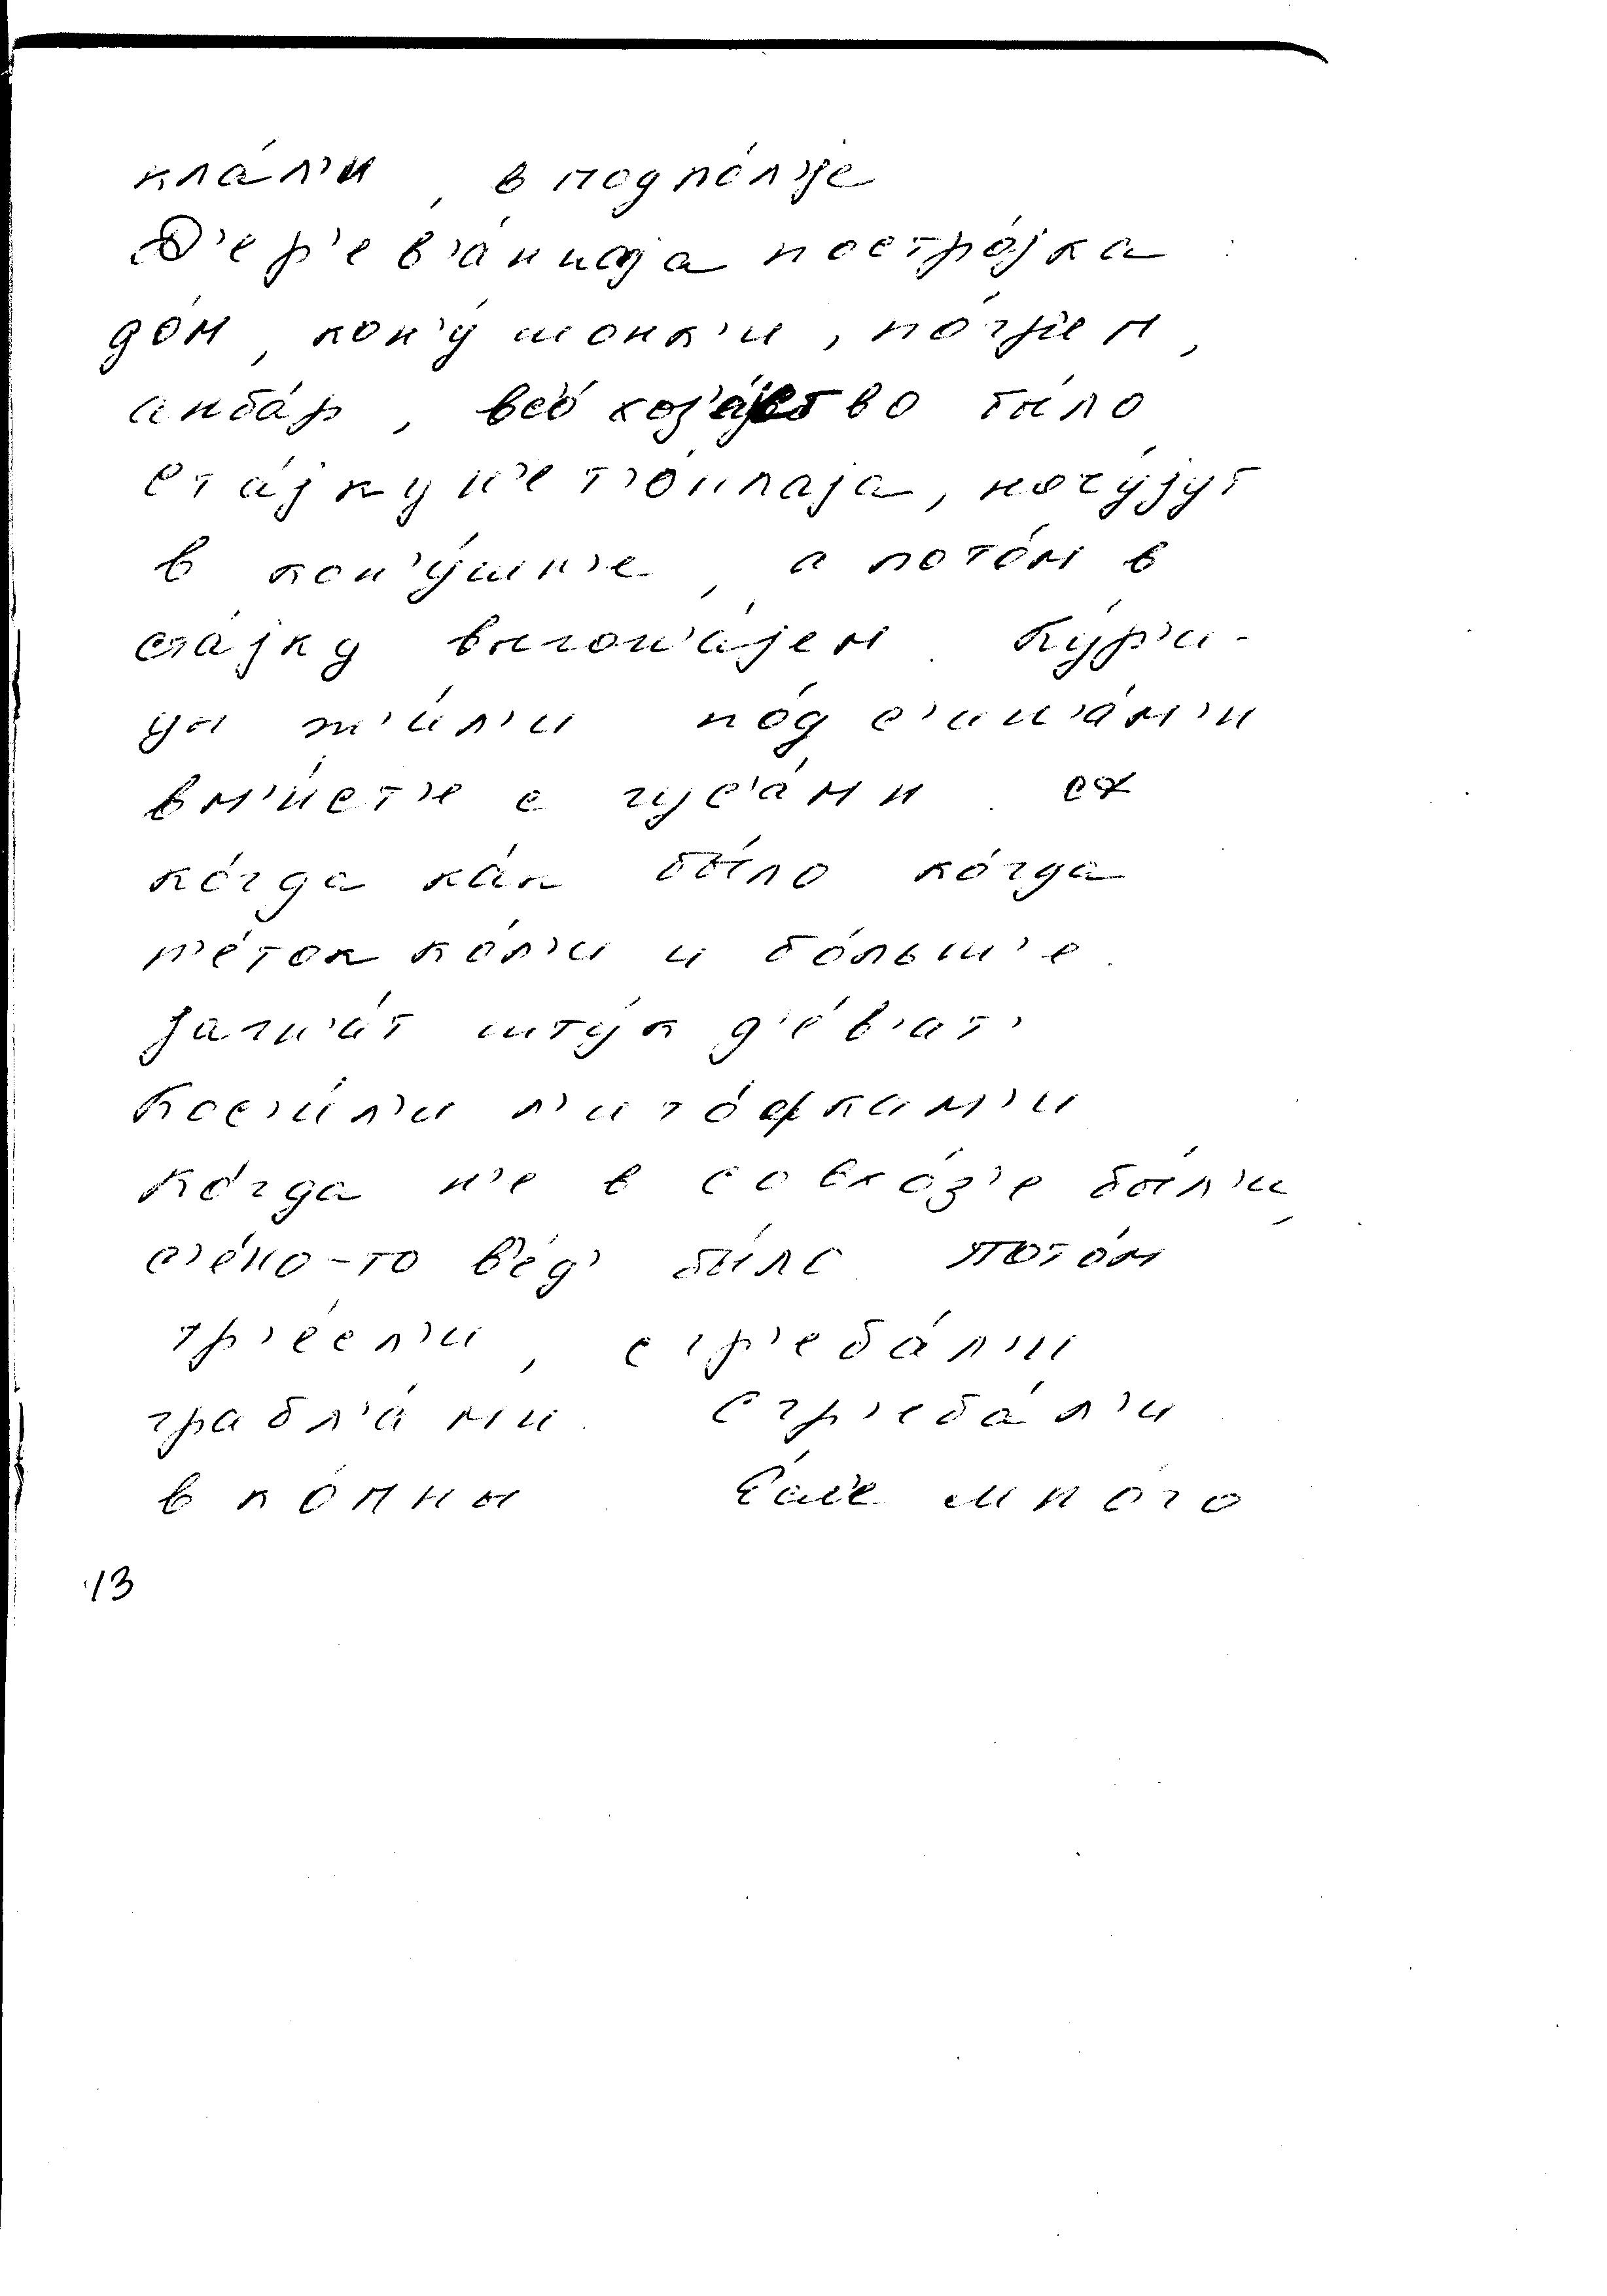 кла́л'и, в подпо́л'је
Д'ер'ев'а́ннаја постро́јка :
до́м, кон'у́шонк'и, по́гр'ем,
анба́р, вс'о́ хоз'а́јство бы́ло
ста́јку н'е т'о́плаја, ночу́јут
в кон'у́шн'е, а пото́м в
ста́јку выгон'а́јем. Ку́р'и-
цы ж'и́л'и по́д с'ин'а́м'и
вм'и́ст'е с гус'а́ми.
ко́гда ка́к бы́ло ко́гда
п'е́ток кол'и и бо́льш'е.
јагн'а́т шту́к д'е́в'ат'
Кос'и́л'и л'ито́фкам'и
Ко́гда н'е в совхо́з'е бы́л'и,
с'е́но-то в'е́д' бы́ло. Пото́м
тр'е́сл'и, с гр'еба́л'и
грабл'а́ми. Сгр'еба́л'и
в ко́пны. Е́сл'е мно́го
13